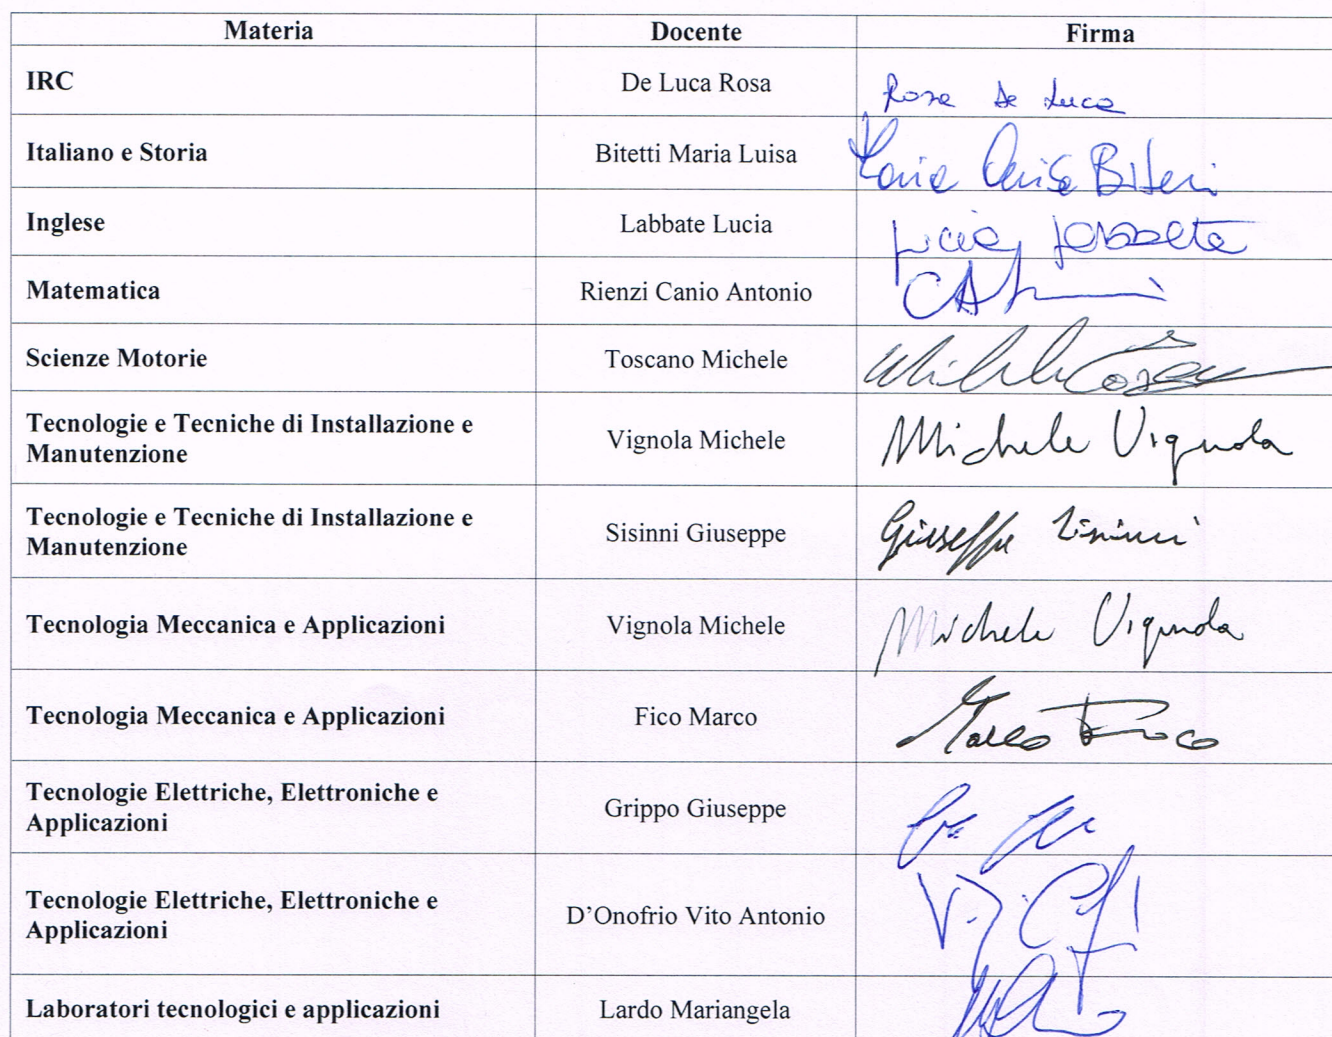 Materia Docente Firma
IRC De Luca Rosa Rosa De Luca
Italiano e Storia Bitetti Maria Luisa Maria Luisa Bitetti
Inglese Labbate Lucia Lucia Labbate
Matematica Rienzi Canio Antonio
Scienze Motorie Toscano Michele Michele
Tecnologie e Tecniche di Installazione e
Manutenzione Vignola Michele Michele Vignola
Tecnologie e Tecniche di Installazione e
Manutenzione Sisinni Giuseppe Giuseppe Sisinni
Tecnologia Meccanica e Applicazioni Vignola Michele Michele Vignola
Tecnologia Meccanica e Applicazioni Fico Marco Marco Fico
Tecnologie Elettriche, Elettroniche e
Applicazioni Grippo Giuseppe
Tecnologie Elettriche, Elettroniche e
Applicazioni D’Onofrio Vito Antonio
Laboratori tecnologici e applicazioni Lardo Mariangela